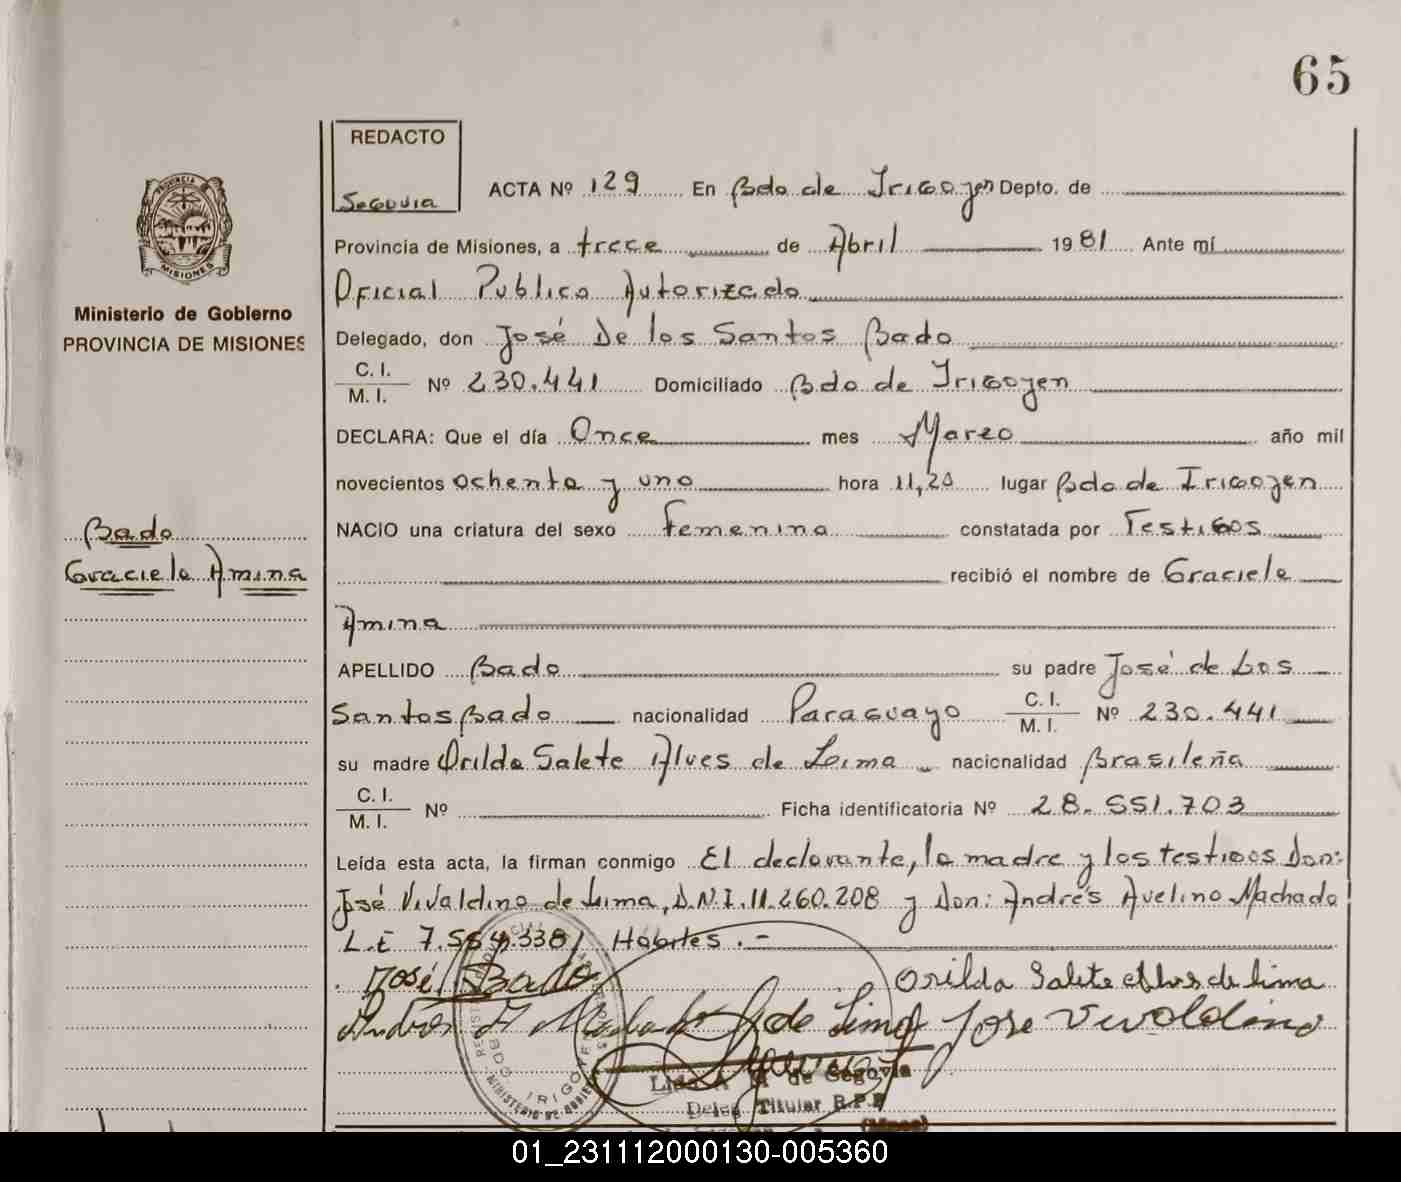 65
REDACTO
Segovia
ACTA Nº 129 En Bdo de Irigoyen Depto. de
Provincia de Misiones, a trece de Abril 1981 Ante mí
Oficial Publico Autorizado
Delegado, don José De los Santos Bado
C. I.
M. I. Nº 230.441 Domiciliado Bdo de Irigoyen
DECLARA: Que el día Once mes Marzo año mil
novecientos ochenta y uno hora 11,20 lugar Bdo de Irigoyen
NACIO una criatura del sexo Femenina constatada por Testigos
recibió el nombre de Graciela
Amina
APELLIDO Bado su padre José de Los
Santos Bado nacionalidad Paraguayo C. I.
M. I. Nº 230.441
su madre Orilda Salete Alves de Lima nacionalidad Brasileña
C. I.
M. I. Nº Ficha identificatoria Nº 28.551.703
Leída esta acta, la firman conmigo El declarante, la madre y los testigos Don:
José Vivaldino de Lima, D.N.I. 11.260.208 y Don: Andrés Avelino Machado
L.E 7.554.338, Hábiles.-
José Bado Orilda Salete Alves de Lima
Andrés A Machado de Lima Jose Vivaldino
Lida A. de Segovia
Deleg Titular R.P.P
(Mnes)
PROVINCIA DE MISIONES
Ministerio de Gobierno
PROVINCIA DE MISIONES
Bado
Graciela Amina
01_231112000130-005360